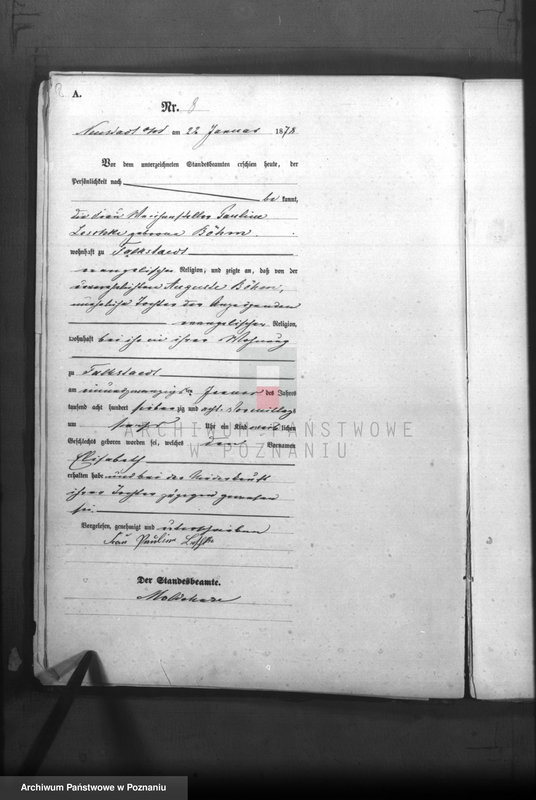 A.
Nr. 8
Neustadt am 22 Januar 1878
Vor dem unterzeichneten Standesbeamten erschien heute, der
Persönlichkeit nach
be kannt,
die Frau Weichensteller Pauline
geborene Böhm
wohnhaft zu
evangelischer Religion, und zeigte an, daß von der
unverehelichten Auguste Böhm,
unehelichen Tochter der Anzeigenden
evangelischer Religion,
wohnhaft bei ihr in ihrer Wohnung
zu
am einundzwanzigsten Januar des Jahres
tausend acht hundert siebenzig und acht Vormittags
um Uhr ein Kind weiblichen
Geschlechts geboren worden sei, welches den Vornamen
Elisabeth
erhalten habe und bei der Niederkunft
ihrer Tochter zugegen gewesen
sei.
Vorgelesen, genehmigt und unterschrieben
Frau Pauline
Der Standesbeamte.
ARCHIWUM PAŃSTWOWE
W POZNANIU
Archiwum Państwowe w Poznaniu